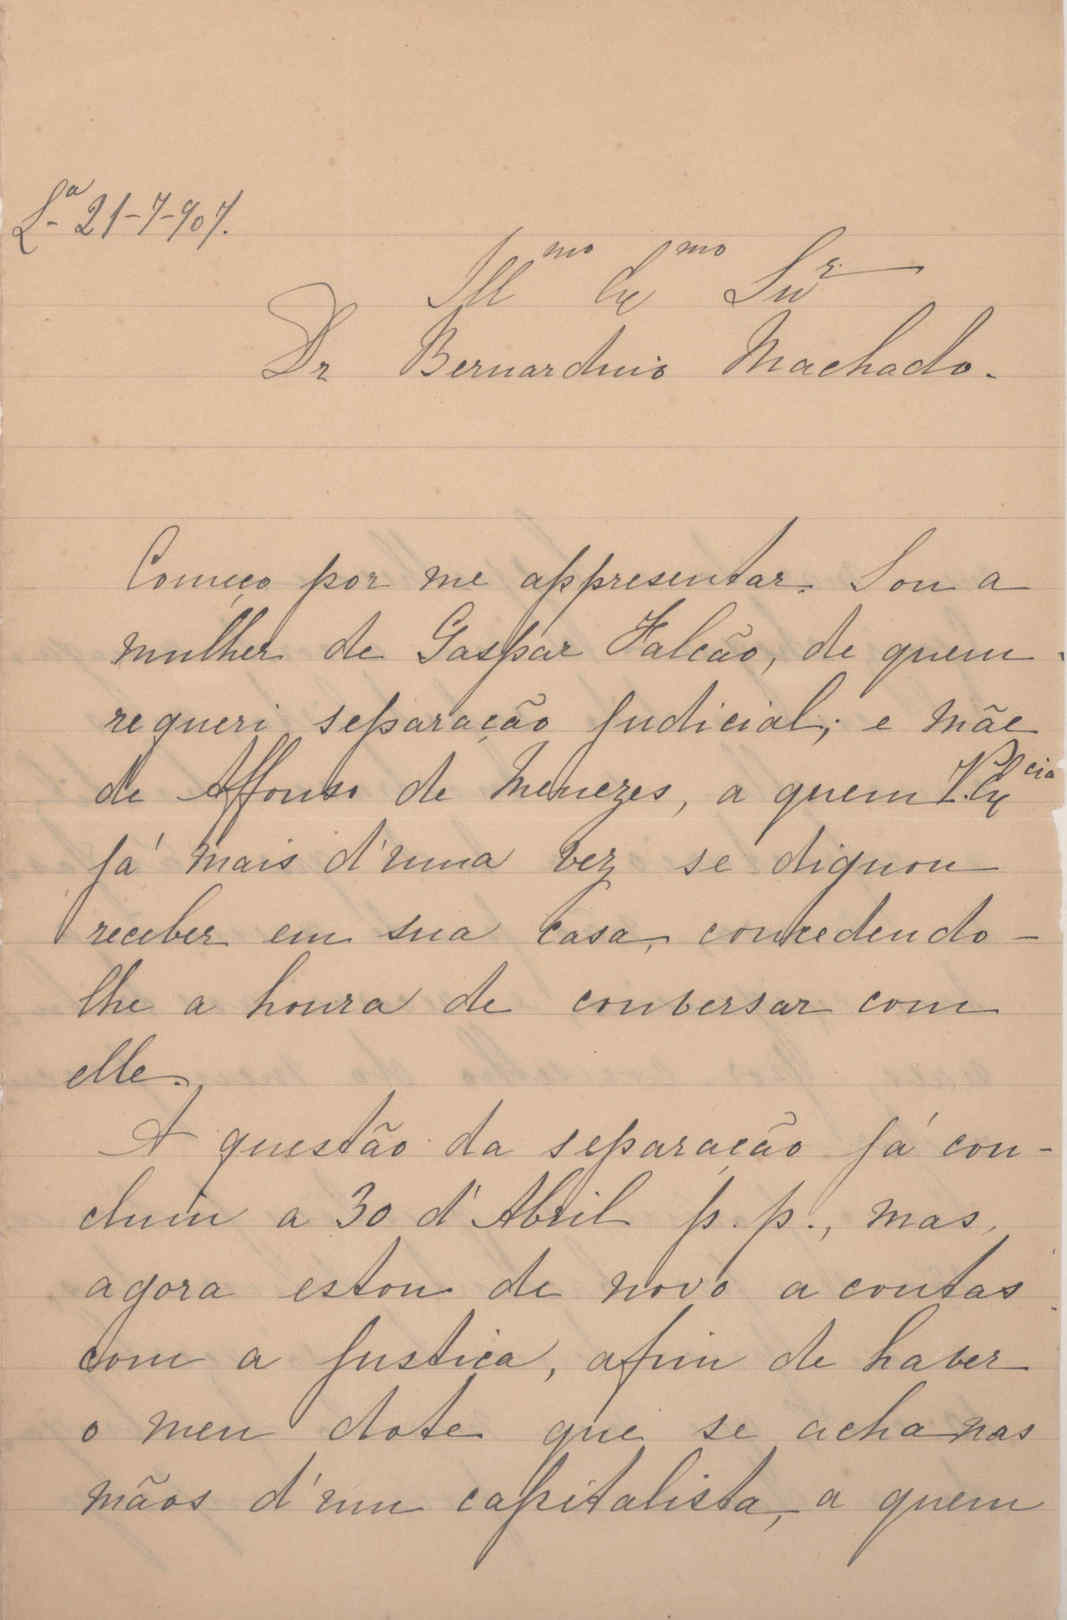 L.ª 21-7-907.
Illmo Exmo Snr.
Dr Bernardino Machado.
Começo por me appresentar. Sou a
mulher de Gaspar Falcão, de quem
requeri separação judicial; e mãe
de Affonso de Menezes, a quem V. Excia
já mais d'uma vez se dignou
receber em sua casa, concedendo-
lhe a honra de conversar com
elle.
A questão da separação já con-
cluiu a 30 d'Abril p. p., mas,
agora estou de novo a contas
com a justiça, afim de haver
o meu dote que se acha nas
mãos d'um capitalista, a quem